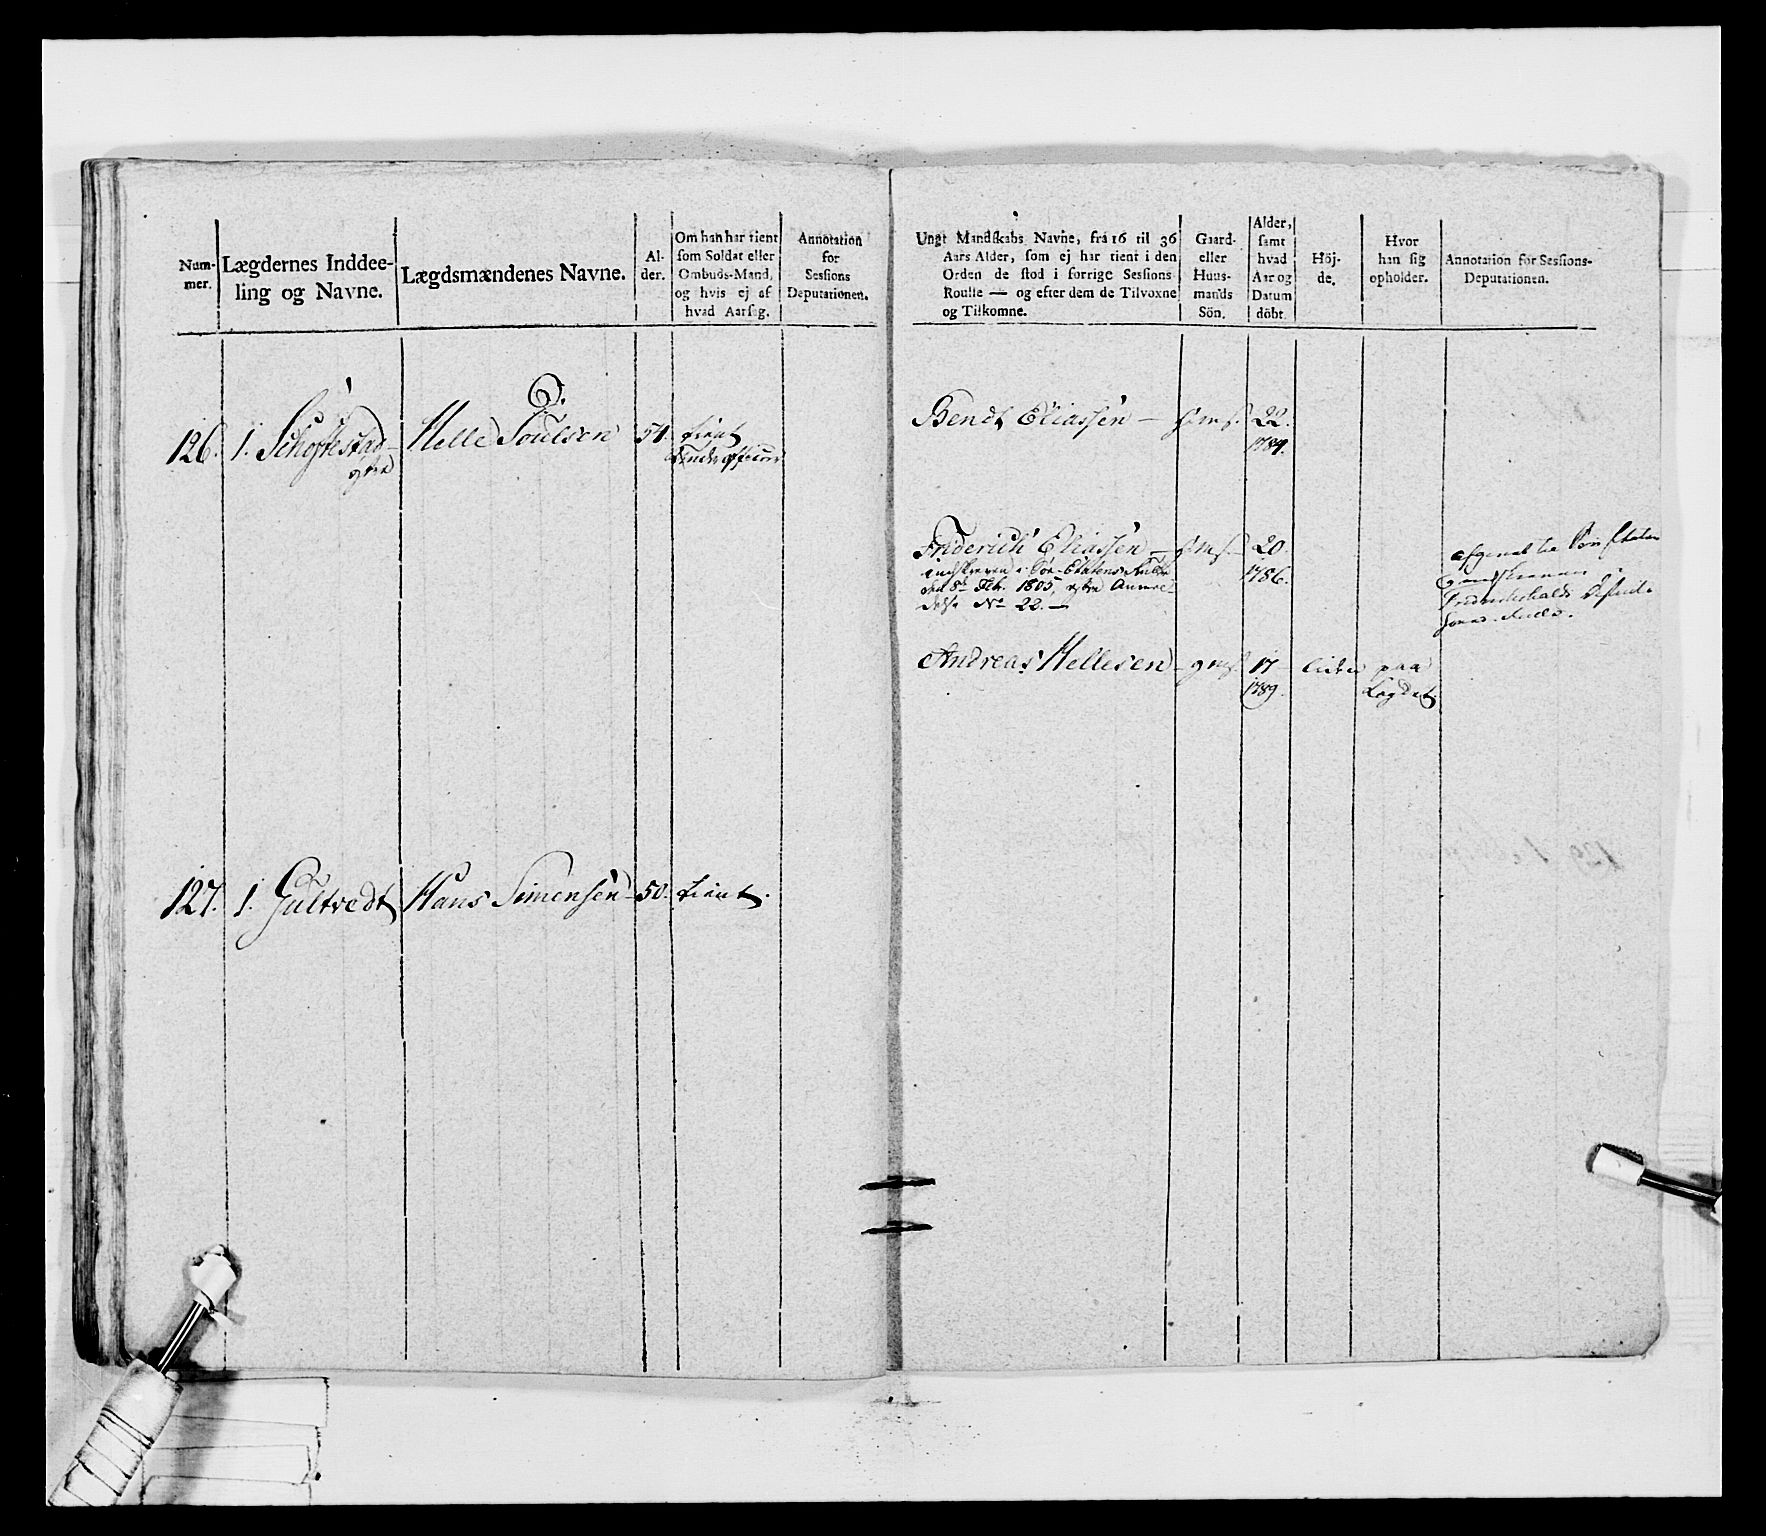 Num-
mer.
Lægdernes Inddee-
ling og Navne.
Lægdsmændenes Navne.
Al-
der.
Om han har tient
som Soldat eller
Ombuds-Mand,
og hvis ej af
hvad Aarsag.
Annotation
for
Sessions
Deputationen.
126.
1. Schoftestad
Helle Poulsen
54.
tient
Underofficeer
127.
1. Gultvedt
Hans Simensen
50.
tient.
Ungt Mandskabs Navne, fra 16 til 36
Aars Alder, som ej har tient i den
Orden de stod i forrige Sessions
Roulle — og efter dem de Tilvoxne
og Tilkomne.
Gaard-
eller
Huus-
mands
Sön.
Alder,
samt
hvad
Aar og
Datum
döbt.
Höj-
de.
Hvor
han sig
opholder.
Annotation for Sessions-
Deputationen.
Bendt Eliassen —
22.
1784.
Friderich Eliassen —
20.
indskreven i Søe-Etatens Rulle
1786.
den 8de Febr. 1805, efter Anmel-
delse No 22. —
Fridrichshalds
Andreas Hellesen
gms
17
liden
paa
1789.
Lægdet.